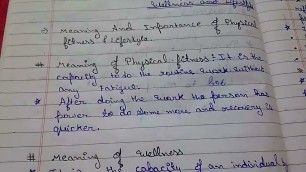 Wellness and Lifestyle
→ Meaning And Importance of Physical
fitness & lifestyle.
# Meaning of Physical fitness : It is the
capacity to do the routine work without
any Fatigue.
* After doing the work the person has
power to do some more and recovery is
quicker.
# Meaning of Wellness
It is the capacity of an individual